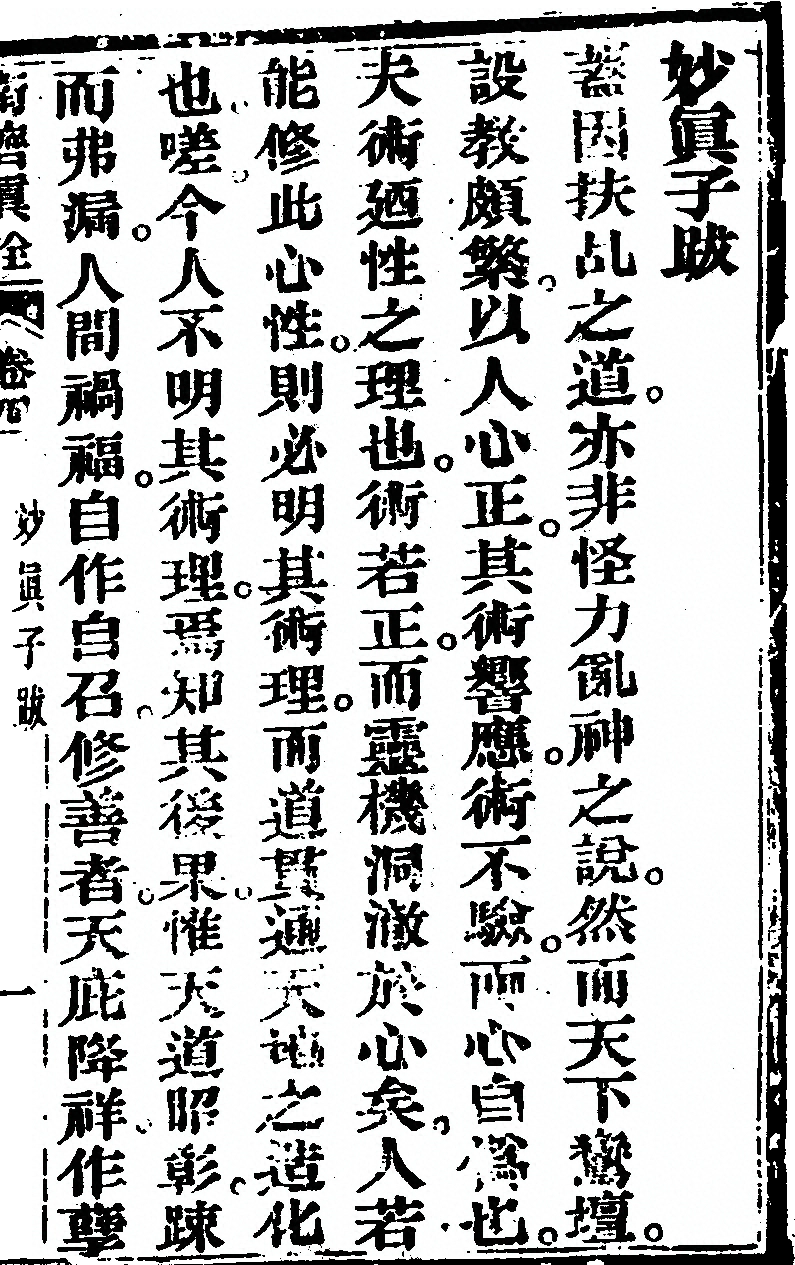 妙眞子跋
蓋因扶乩之道。亦非怪力亂神之說。然而天下鸞壇。
設教頗繁。以人心正。其術響應。術不驗。而心自僞也。
夫術廼性之理也。術若正。而靈機洞澈於心矣。人若
能修此心性。則必明其術理。而道貫通天地之造化
也。嗟。今人不明其術理。焉知其後果。惟天道昭彰。踈
而弗漏。人間禍福。自作自召。修善者。天庇降祥。作孽
卷
妙眞子跋
一